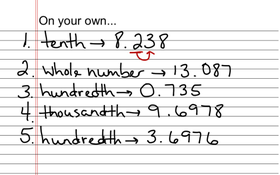 On your own...
1. tenth → 8.238
2. whole number → 13.087
3. hundredth → 0.735
4. thousandth → 9.6978
5. hundredth → 3.6976